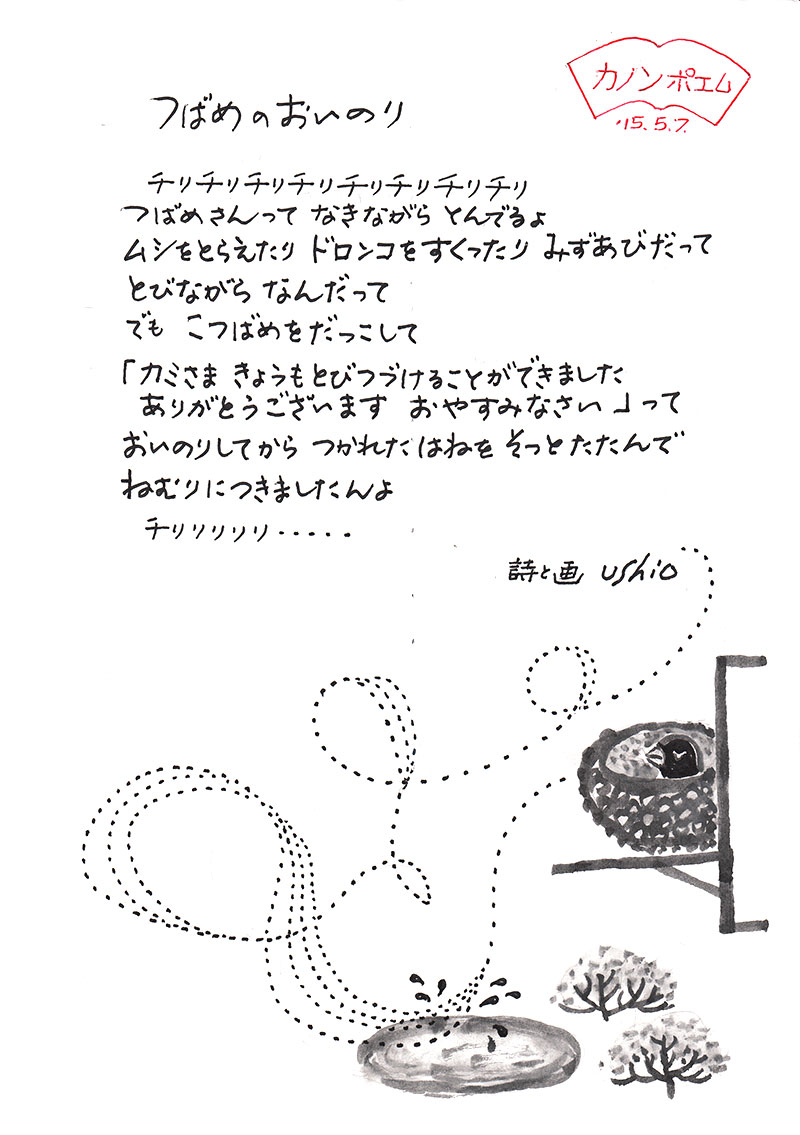 カノンポエム
'15.5.7.
つばめのおいのり
チリチリチリチリチリチリチリチリ
つばめさんって なきながら とんでるよ
ムシをとらえたり ドロンコをすくったり みずあびだって
とびながら なんだって
でも こつばめをだっこして
「カミさま きょうもとびつづけることができました
ありがとうございます おやすみなさい」って
おいのりしてから つかれたはねを そっとたたんで
ねむりにつきましたんよ
チリリリリリ・・・・・
詩と画 ushio